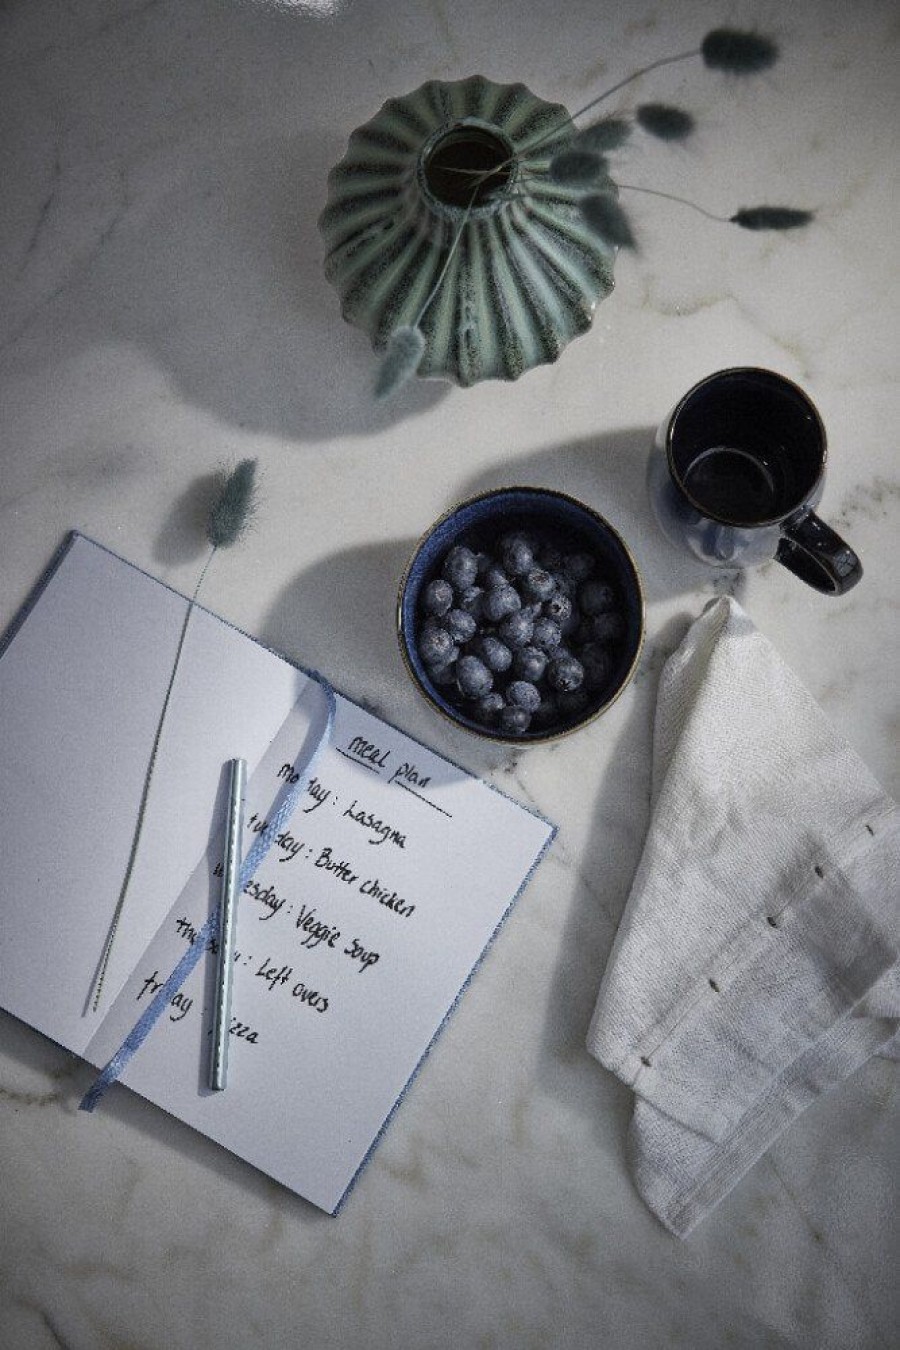 meal plan
monday: Lasagna
tuesday: Butter chicken
wednesday: Veggie Soup
thursday: Left overs
friday: Pizza